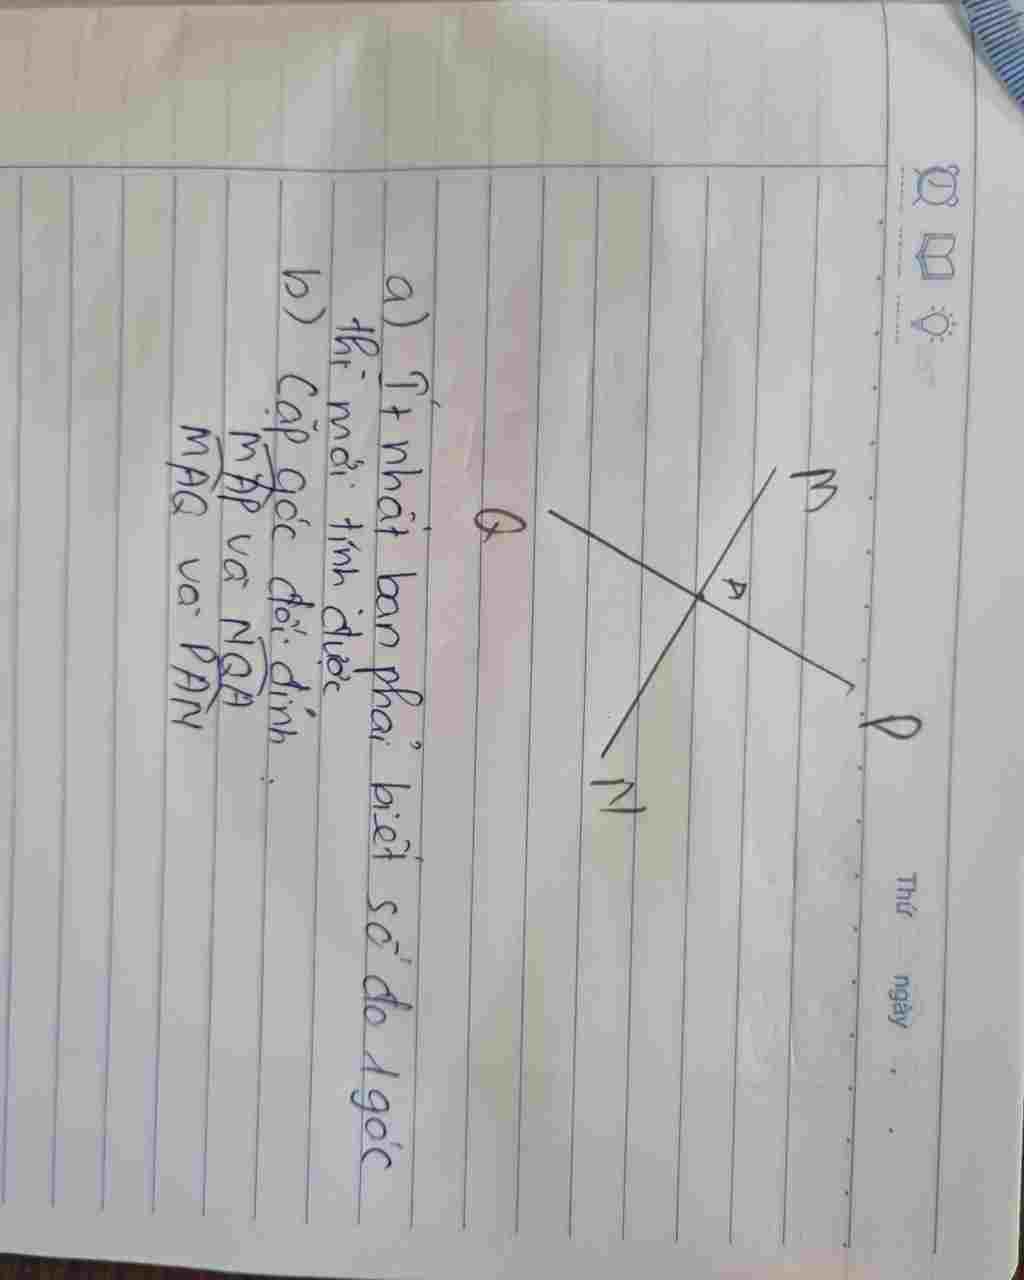 Thứ ngày
M
P
A
Q
N
a) Ít nhất bạn phải biết số đo 1 góc
thì mới tính được
b) Cặp góc đối đỉnh.
MAP và NQA
MAQ và PAN